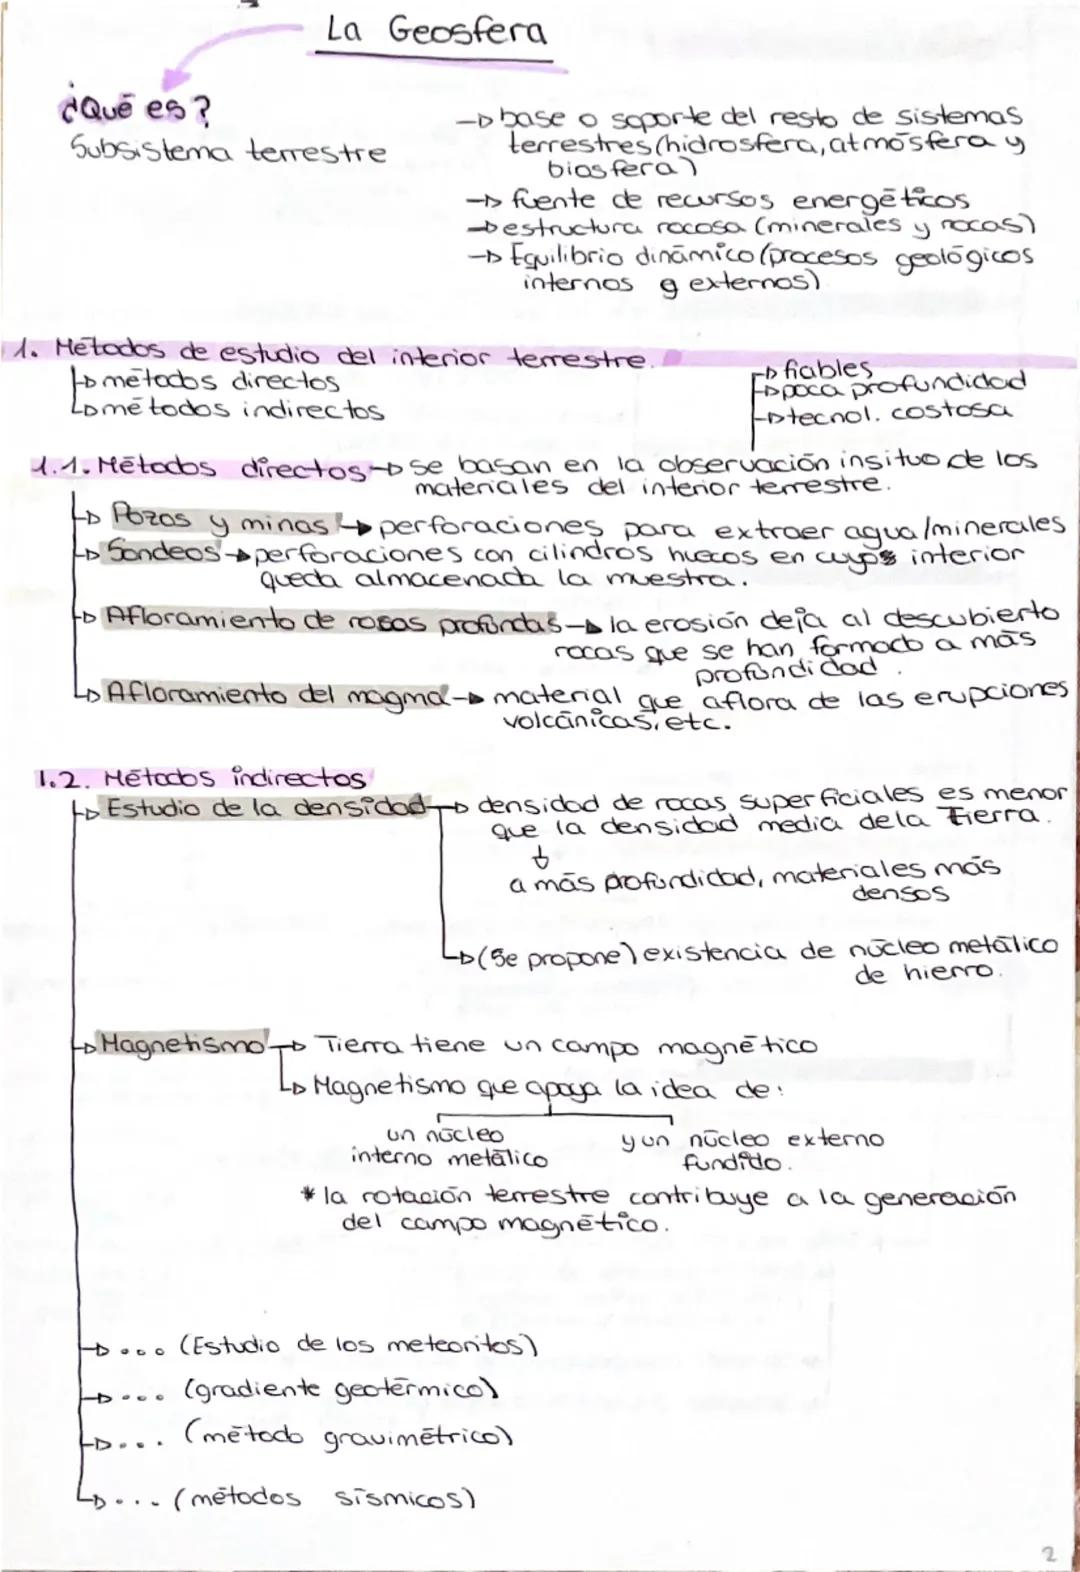 La Geosfera
¿Qué es?
Subsistema terrestre
→ base o soporte del resto de sistemas
terrestres (hidrosfera, atmósfera y
biosfera)
→ fuente de recursos energéticos
→ estructura rocosa (minerales y rocas)
→ Equilibrio dinámico (procesos geológicos
internos y externos)
1. Métodos de estudio del interior terrestre.
→ métodos directos
→ métodos indirectos
→ fiables
→ poca profundidad
→ tecnol. costosa
1.1. Métodos directos → se basan en la observación insituo de los
materiales del interior terrestre.
→ Pozos y minas → perforaciones para extraer agua/minerales
→ Sondeos → perforaciones con cilindros huecos en cuyos interior
queda almacenada la muestra.
→ Afloramiento de rocas profundas → la erosión deja al descubierto
rocas que se han formado a más
profundidad.
→ Afloramiento del magma → material que aflora de las erupciones
volcánicas, etc.
1.2. Métodos indirectos
→ Estudio de la densidad → densidad de rocas superficiales es menor
que la densidad media de la Tierra.
↓
a más profundidad, materiales más
densos
→ (Se propone) existencia de núcleo metálico
de hierro.
→ Magnetismo → Tierra tiene un campo magnético
→ Magnetismo que apoya la idea de:
un núcleo y un núcleo externo
interno metálico fundido.
* la rotación terrestre contribuye a la generación
del campo magnético.
→ ... (Estudio de los meteoritos)
→ ... (gradiente geotérmico)
→ ... (método gravimétrico)
→ ... (métodos sísmicos)
2